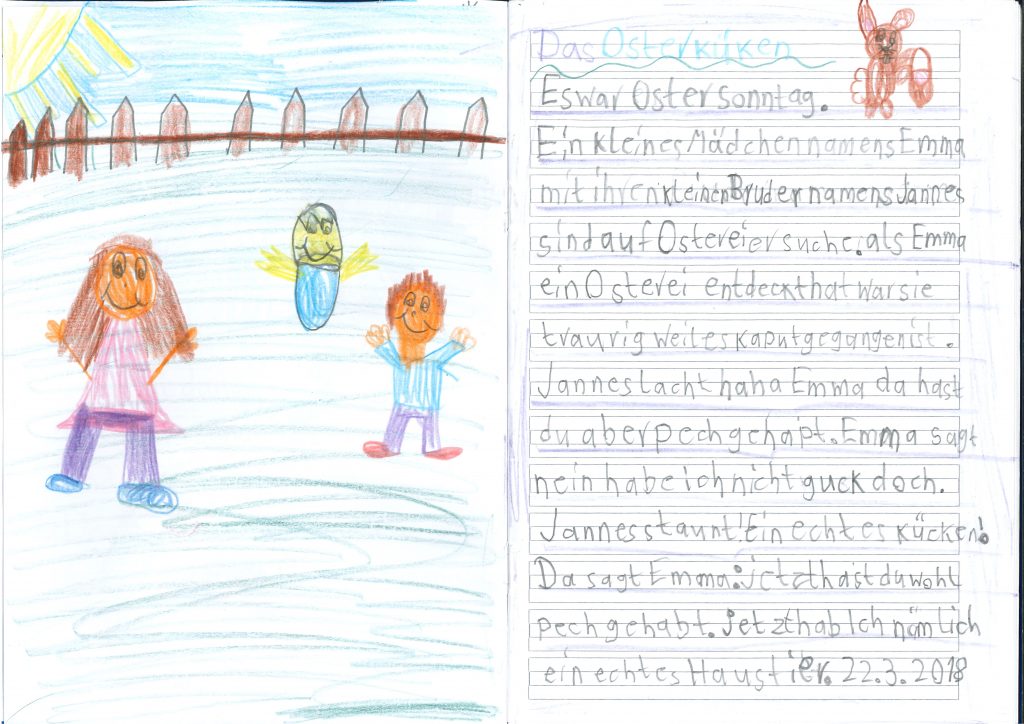 Das Osterküken
Es war Ostersonntag.
Ein kleines Mädchen namens Emma
mit ihren kleinen Bruder namens Jannes
sind auf Ostereiersuche. als Emma
ein Osterei entdeckt hat war sie
traurig weil es kaputgegangen ist.
Jannes lacht haha Emma da hast
du aber pech gehapt. Emma sagt
nein habe ich nicht guck doch.
Jannes staunt! Ein echtes kücken!
Da sagt Emma: jetzt hast du wohl
pech gehabt. Jetzt hab Ich nämlich
ein echtes Haustier. 22.3.2018